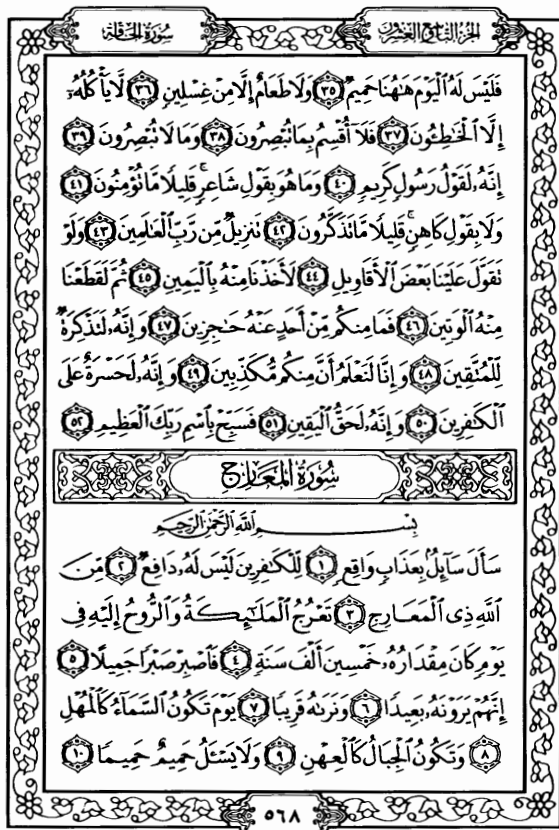 الجزء التاسع والعشرون سورة الحاقة
فَلَيْسَ لَهُ الْيَوْمَ هَاهُنَا حَمِيمٌ ٣٥ وَلَا طَعَامٌ إِلَّا مِنْ غِسْلِينٍ ٣٦ لَّا يَأْكُلُهُ
إِلَّا الْخَاطِئُونَ ٣٧ فَلَا أُقْسِمُ بِمَا تُبْصِرُونَ ٣٨ وَمَا لَا تُبْصِرُونَ ٣٩
إِنَّهُ لَقَوْلُ رَسُولٍ كَرِيمٍ ٤٠ وَمَا هُوَ بِقَوْلِ شَاعِرٍ ۚ قَلِيلًا مَّا تُؤْمِنُونَ ٤١
وَلَا بِقَوْلِ كَاهِنٍ ۚ قَلِيلًا مَّا تَذَكَّرُونَ ٤٢ تَنزِيلٌ مِّن رَّبِّ الْعَالَمِينَ ٤٣ وَلَوْ
تَقَوَّلَ عَلَيْنَا بَعْضَ الْأَقَاوِيلِ ٤٤ لَأَخَذْنَا مِنْهُ بِالْيَمِينِ ٤٥ ثُمَّ لَقَطَعْنَا
مِنْهُ الْوَتِينَ ٤٦ فَمَا مِنكُم مِّنْ أَحَدٍ عَنْهُ حَاجِزِينَ ٤٧ وَإِنَّهُ لَتَذْكِرَةٌ
لِّلْمُتَّقِينَ ٤٨ وَإِنَّا لَنَعْلَمُ أَنَّ مِنكُم مُّكَذِّبِينَ ٤٩ وَإِنَّهُ لَحَسْرَةٌ عَلَى
الْكَافِرِينَ ٥٠ وَإِنَّهُ لَحَقُّ الْيَقِينِ ٥١ فَسَبِّحْ بِاسْمِ رَبِّكَ الْعَظِيمِ ٥٢
سُورَةُ الْمَعَارِجِ
بِسْمِ اللَّهِ الرَّحْمَٰنِ الرَّحِيمِ
سَأَلَ سَائِلٌ بِعَذَابٍ وَاقِعٍ ١ لِّلْكَافِرِينَ لَيْسَ لَهُ دَافِعٌ ٢ مِّنَ
اللَّهِ ذِي الْمَعَارِجِ ٣ تَعْرُجُ الْمَلَائِكَةُ وَالرُّوحُ إِلَيْهِ فِي
يَوْمٍ كَانَ مِقْدَارُهُ خَمْسِينَ أَلْفَ سَنَةٍ ٤ فَاصْبِرْ صَبْرًا جَمِيلًا ٥
إِنَّهُمْ يَرَوْنَهُ بَعِيدًا ٦ وَنَرَاهُ قَرِيبًا ٧ يَوْمَ تَكُونُ السَّمَاءُ كَالْمُهْلِ
٨ وَتَكُونُ الْجِبَالُ كَالْعِهْنِ ٩ وَلَا يَسْأَلُ حَمِيمٌ حَمِيمًا ١٠
٥٦٨